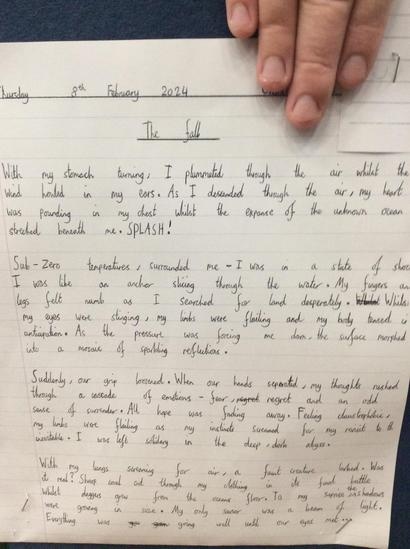 Thursday 8th February 2024
The fall
With my stomach turning, I plummeted through the air whilst the
wind howled in my ears. As I descended through the air, my heart
was pounding in my chest whilst the expanse of the unknown ocean
streched beneath me. SPLASH!
Sub-Zero temperatures, surrounded me - I was in a state of shoc
I was like an anchor slicing through the water. My fingers an
legs felt numb as I searched for land desperately. Whils
my eyes were stinging, my limbs were flailing and my body tensed in
anticipation. As the pressure was forcing me down, the surface morphed
into a mosaic of sparkling reflections.
Suddenly, our grip loosened. When our hands seperated, my thoughts rushed
through a cascade of emotions - fear, regret and an odd
sense of surrender. All hope was fading away. Feeling claustrophobic,
my limbs were floating as my instincts screamed for my to th
inevitable. I was left solitary in the deep, dark abyss.
With my lungs screaming for air, a faint creature lurked. Was
it real? Sharp coral cut through my clothing in its
Whilst daggers grew from the ocean floor. To my suprise the shadows
were growing in size. My only was a beam of light.
Everything was going well until our eyes met...